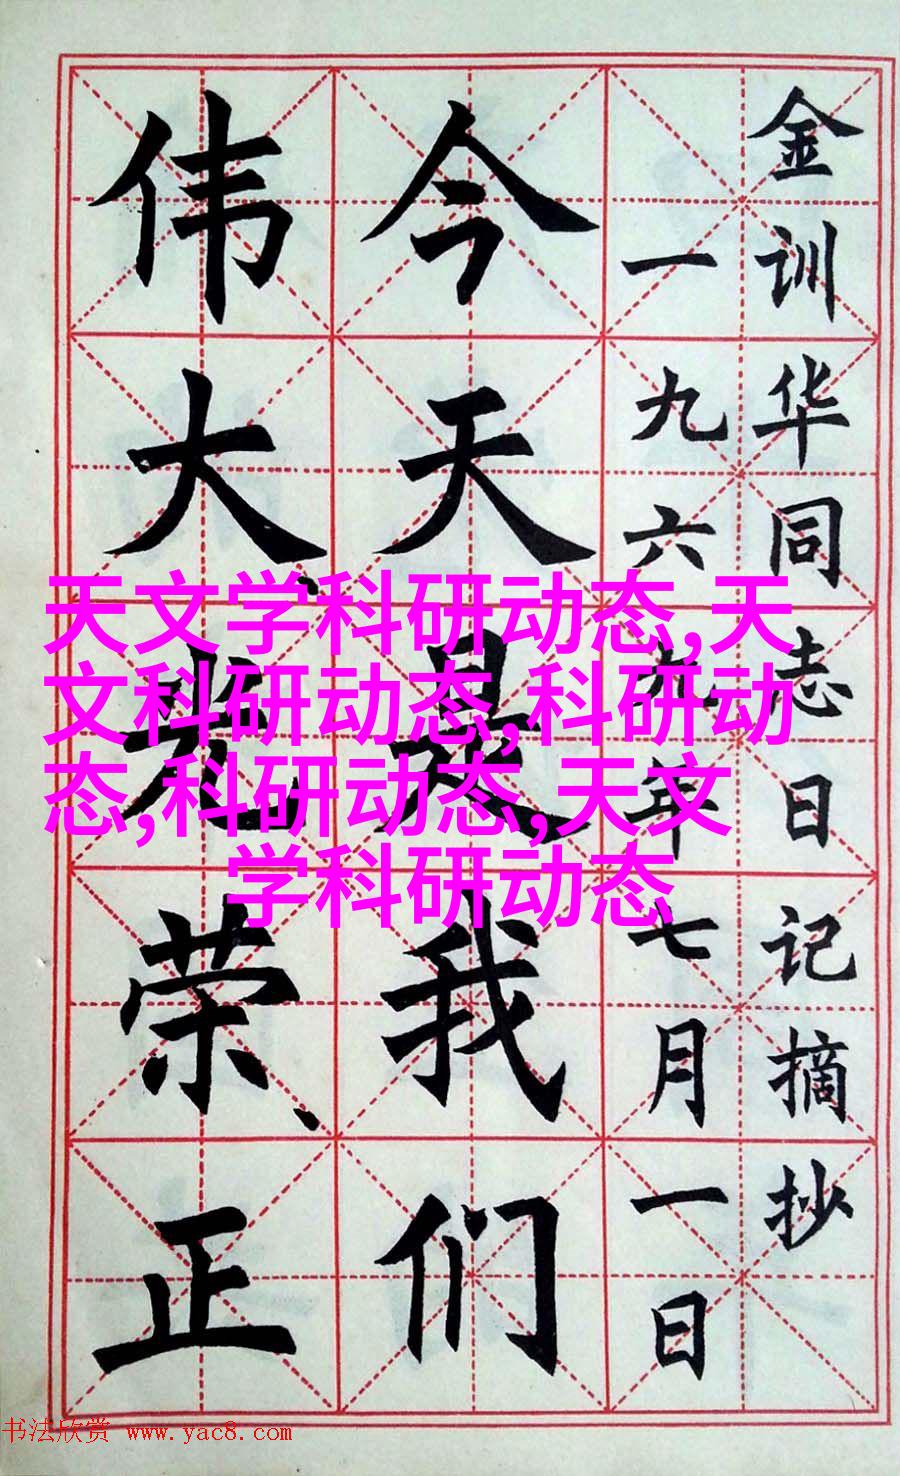 金训华同志日记摘抄
一九六九年七月一日
今天是我们
伟大、光荣、正
天文学科研动态,天
文科研动态,科研动
态,科研动态,天文
学科研动态
书法欣赏 www.yac8.com